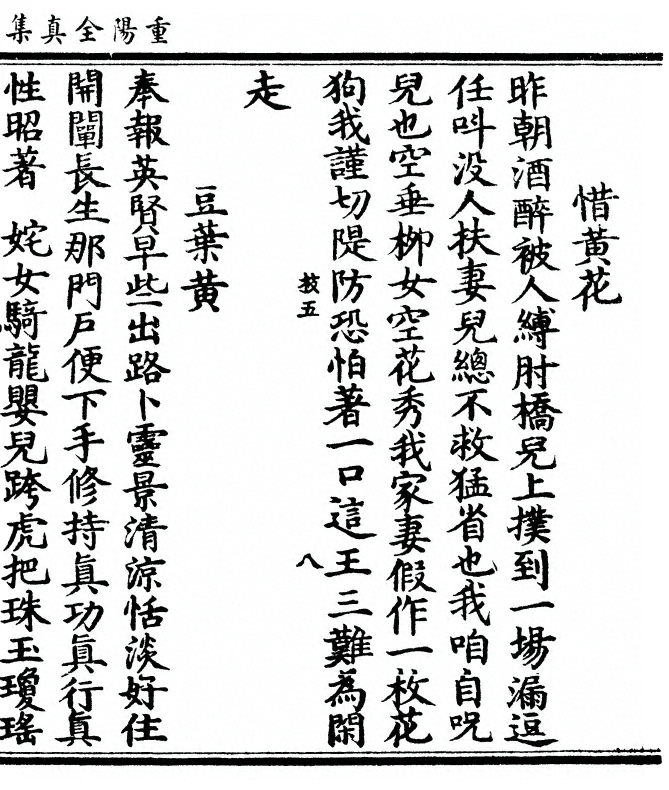 重陽全真集
惜黄花
昨朝酒醉被人縛肘橋兒上撲到一場漏逗
任呌没人扶妻兒總不救猛省也我咱自咒
兒也空垂柳女空花秀我家妻假作一枚花
狗我謹切隄防恐怕著一口這王三難為閑
走
教五
八
豆葉黄
奉報英賢早些出路卜靈景清涼恬淡好住
開闡長生那門戶便下手修持真功真行真
性昭著　姹女騎龍嬰兒跨虎把珠玉瓊瑤